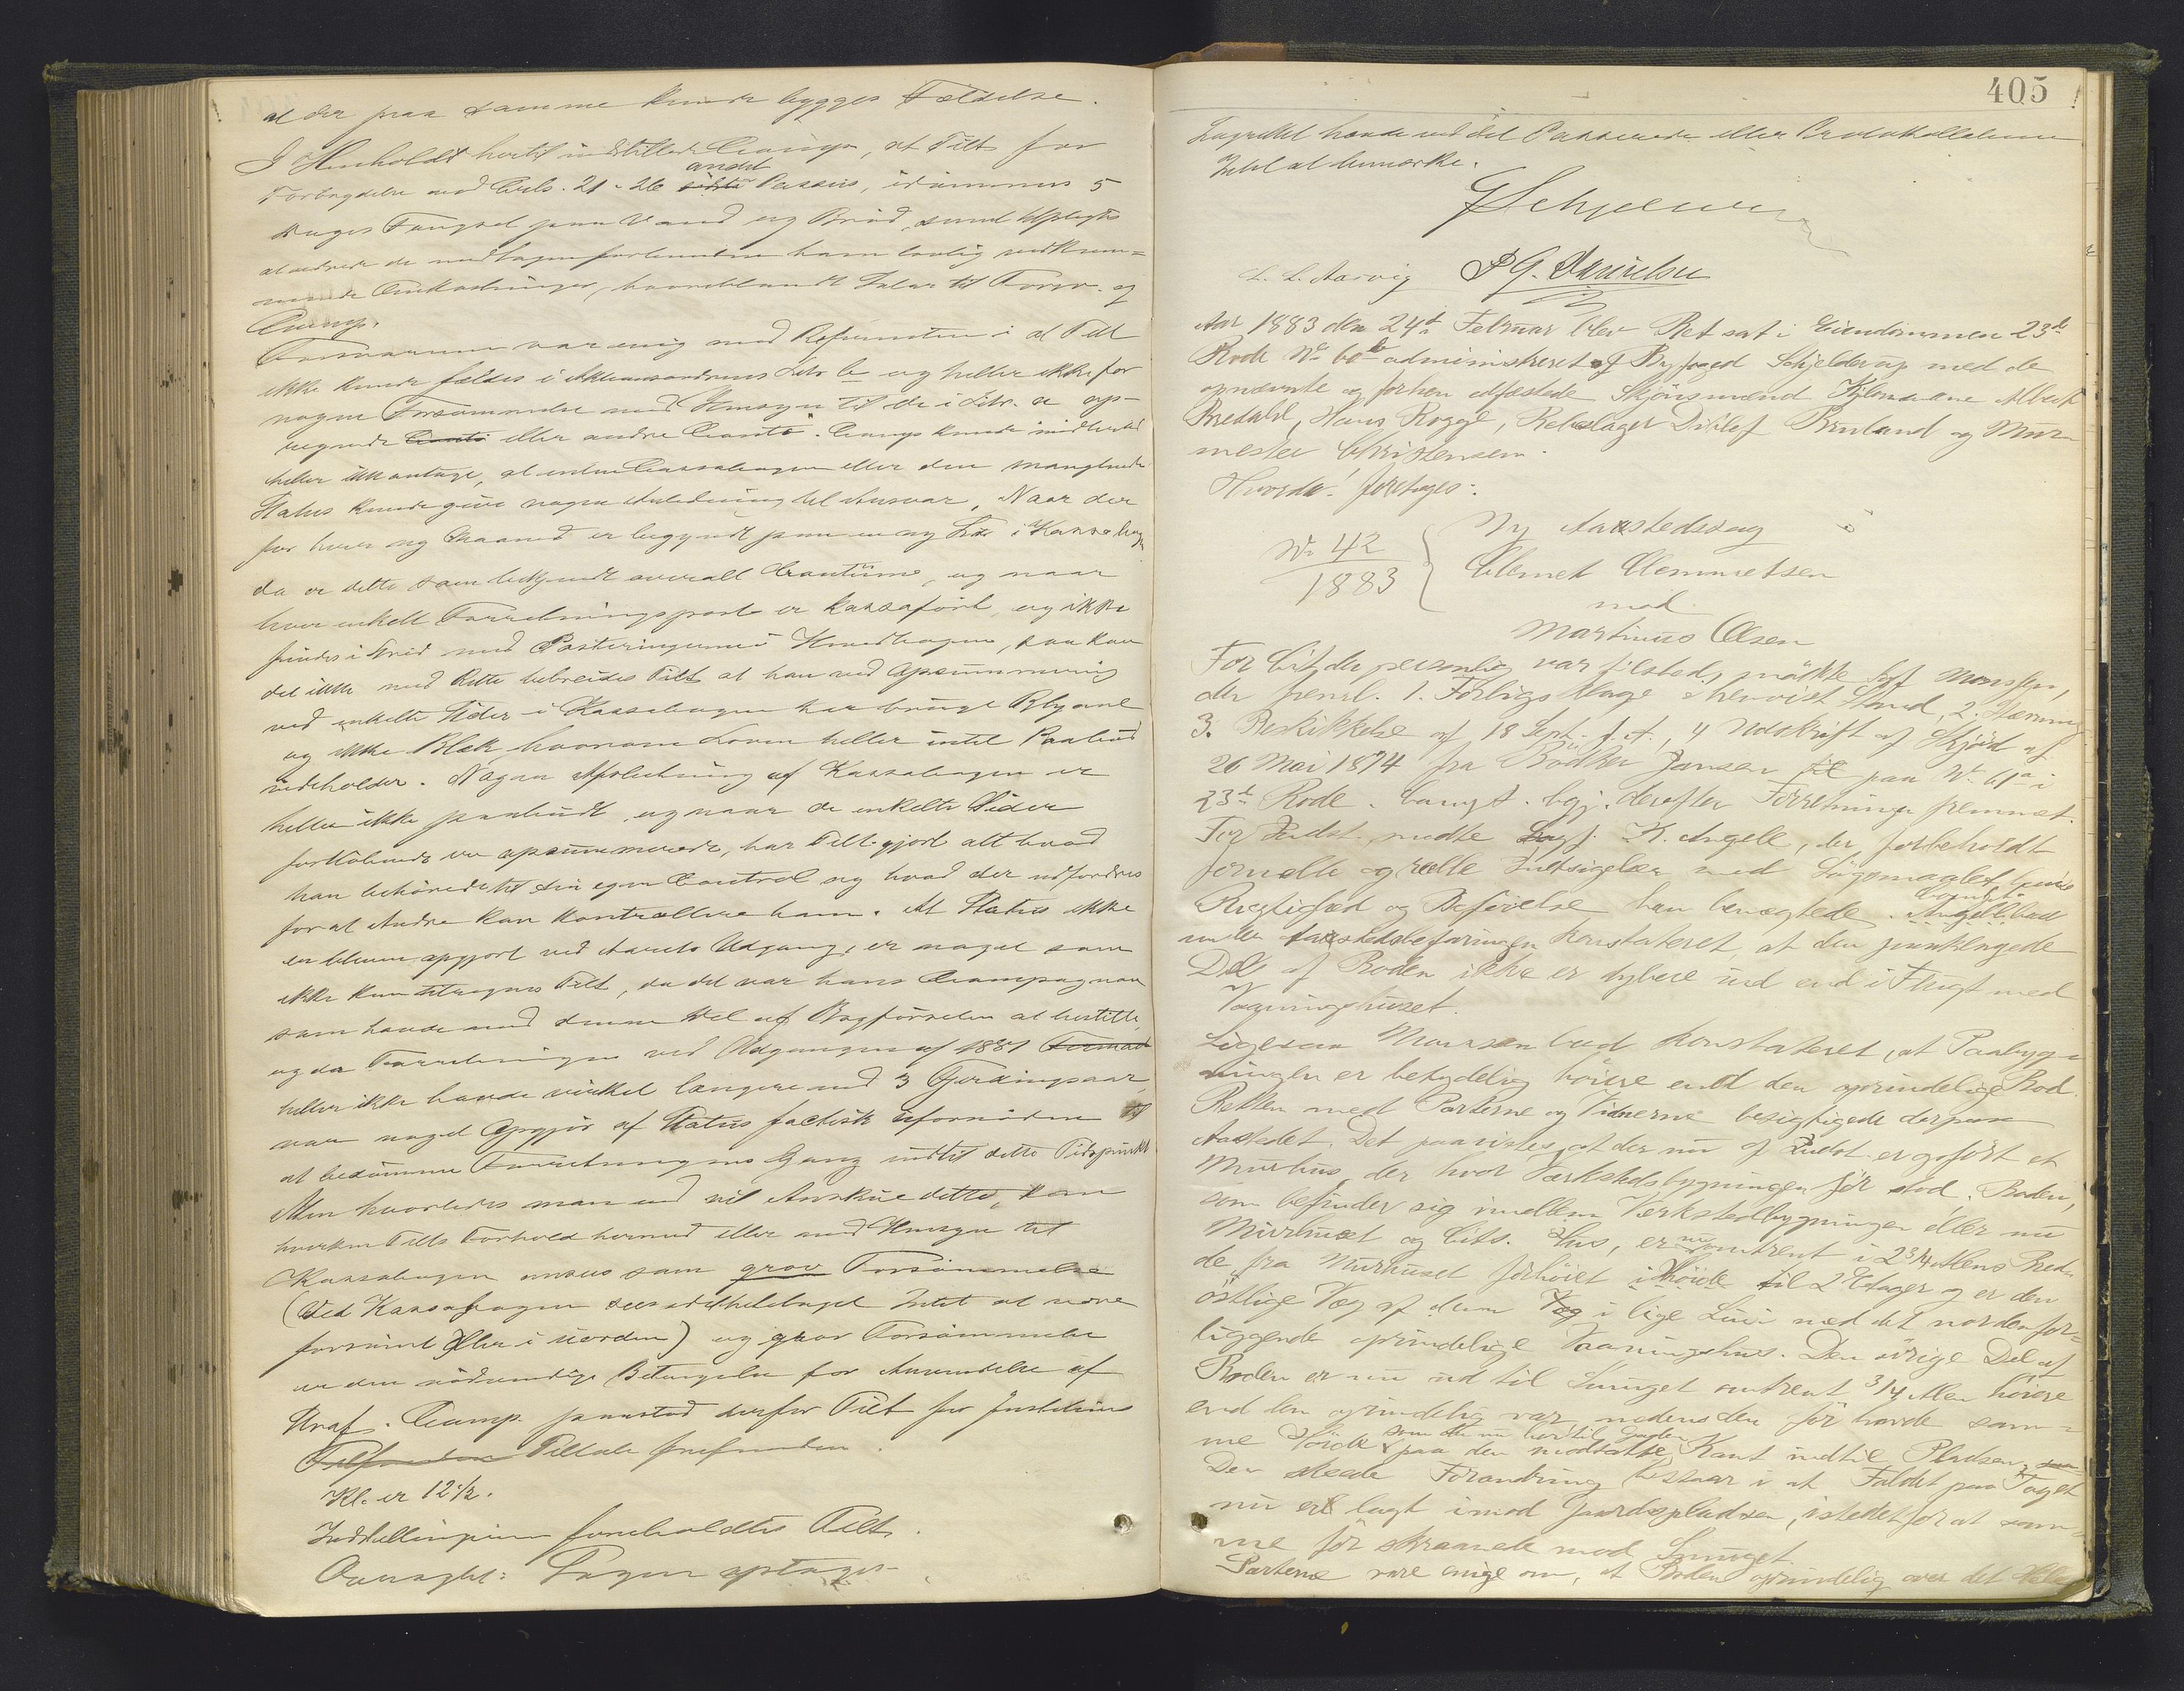 at der paa samme kunde bygges Fældelse.
I Henhold hertil indstillede Comp, at Tilt. for
andet
Forbrydelse mod Crls. 21-26 sidste Passus, idømmes 5
Dages Fængsel paa Vand og Brød, samt tilpligtes
at udrede de med Sagen forbundne ham lovlig vedkom=
mende Omkostninger, hvoriblandt Salær til Forsv. og
Comp.
Forsvareren var enig med Referenten i at Tilt
ikke kunde fældes i Aktionsordrens Litr b og heller ikke for
nogen Forsømmelse med Hensyn til de i Litr. a op-
regnede Conti eller andre Conto. Comp kunde imidlertid
heller ikke antage, at enten Cassabogen eller den manglende
Status kunde give nogen Anledning til Ansvar, Naar der
for hver ny Maaned er begyndt paa en ny Side i Kassabogen
da er dette som bekjendt overalt Coutume, og naar
hver enkelt Forretningspost er kassaført, og ikke
findes i Strid med Posteringerne i Hovedbogen, saa kan
det ikke med Rette bebreides Tilt at han ved Opsummering
ved enkelte Sider i Kassabogen har brugt Blyant
og ikke Blæk, hvorom Loven heller intet Paabud
indeholder. Nogen Afslutning af Kassabogen er
heller ikke paabudt, og naar de enkelte Sider
fortløbende ere opsummerede, har Tilt gjort alt hvad
han behøvede til sin egen Control og hvad der udfordres
for at Andre kan kontrollere ham. At Status ikke
er bleven opgjort ved Aarets Udgang, er noget som
ikke kan tilregnes Tilt, da det var hans Compagnon
som havde med denne Del af Bogførselen at bestille,
og da Forretningen ved Udgangen af 1881
heller ikke havde virket længere end 3 Fjerdingaar
var noget Opgjør af Status factisk ufornøden til
at bedømme Forretningens Gang indtil dette Tidspunkt
Men hvorledes man end vil Anskue dette, kan
hverken Tilts Forhold hermed eller med Hensyn til
Kassabogen ansees som grov Forsømmelse
(Ved Kassabogen sees idethele taget Intet at være
forsømt eller i Uorden) og grov Forsømmelse
er den nødvendige Betingelse for Anvendelse af
Straf. Comp. paastod derfor Tilt for Justitiens
Tiltale frifunden.
Kl. er 12½.
Indstillingen foreholdtes Tilt.
Overagtet: Sagen optages.
405
Lagrettet havde ved det Passerede eller Protokollationen
Intet at bemærke.
G Schjelderup
L. L. Aarvig P G. Danielsen
Aar 1883 den 24de Februar blev Ret sat i Eiendommen 23de
Rode No 60b administreret af Byfoged Schjelderup med de
opnævnte og forhen edfæstede Skjønsmænd Kjøbmændene Albert
Bredahl, Hans Rogge, Rebslager Ditlef Bruland og Mur
mester Christensen.
Hvorda! foretages:
No 42
1883
Ny Aastedssag
Clemet Clemmetsen
mod
Martinus Olsen
For Cit, der personlig var tilstede, mødte Sagf Monssen,
der freml. 1. Forligsklage i henvist Stand, 2. Stævning
3. Beskikkelse af 18 Sept. f. A., 4 Udskrift af Skjøde af
26 Mai 1874 fra Bødker Jansen til paa No. 61a i
23de Rode. bevgt. bgj. derefter Forretningen fremmet.
For Indst. mødte Sagf. K. Angell, der forbeholdt
formelle og reelle Indsigelser med Søgsmaalets
Rigtighed og Beføielse han benegtede. Angell bad
under Aastedsbefaringen konstateret, at den paaklagede
Del af Boden ikke er dybere ind end i Flugt med
Vaaningshuset.
Ligesaa Monssen bad konstateret, at Paabyg=
ningen er betydelig høiere end den oprindelige Bod.
Retten med Parterne og Vidnerne besigtigede derpaa
Aastedet. Det paavistes, at der nu af Indst er opført et
Murhus, der hvor Værkstedsbygningen før stod. Boden,
som befinder sig imellem Værkstedbygningen eller nu
Murhuset og Cits. Hus, er nu omtrent i 2 3/4 Alens Bred
de fra Murhuset forhøiet i Høide til 2 Etager og er den
østlige Væg af denne Væg i lige Linie med det nordenfor=
liggende oprindelige Vaaningshus. Den øvrige Del af
Boden er nu ind til Smuget omtrent 3/4 Alen høiere
end den oprindelig var, medens den før havde sam=
som den nu har til Gaden
me Høide paa den modsatte Kant indtil Pladsen,
Den skeede Forandring bestaar i at Faldet paa Taget
nu er lagt imod Gaardspladsen, istedetfor at sam=
me før skraanede mod Smuget.
Parterne vare enige om, at Boden oprindelig over det Hele